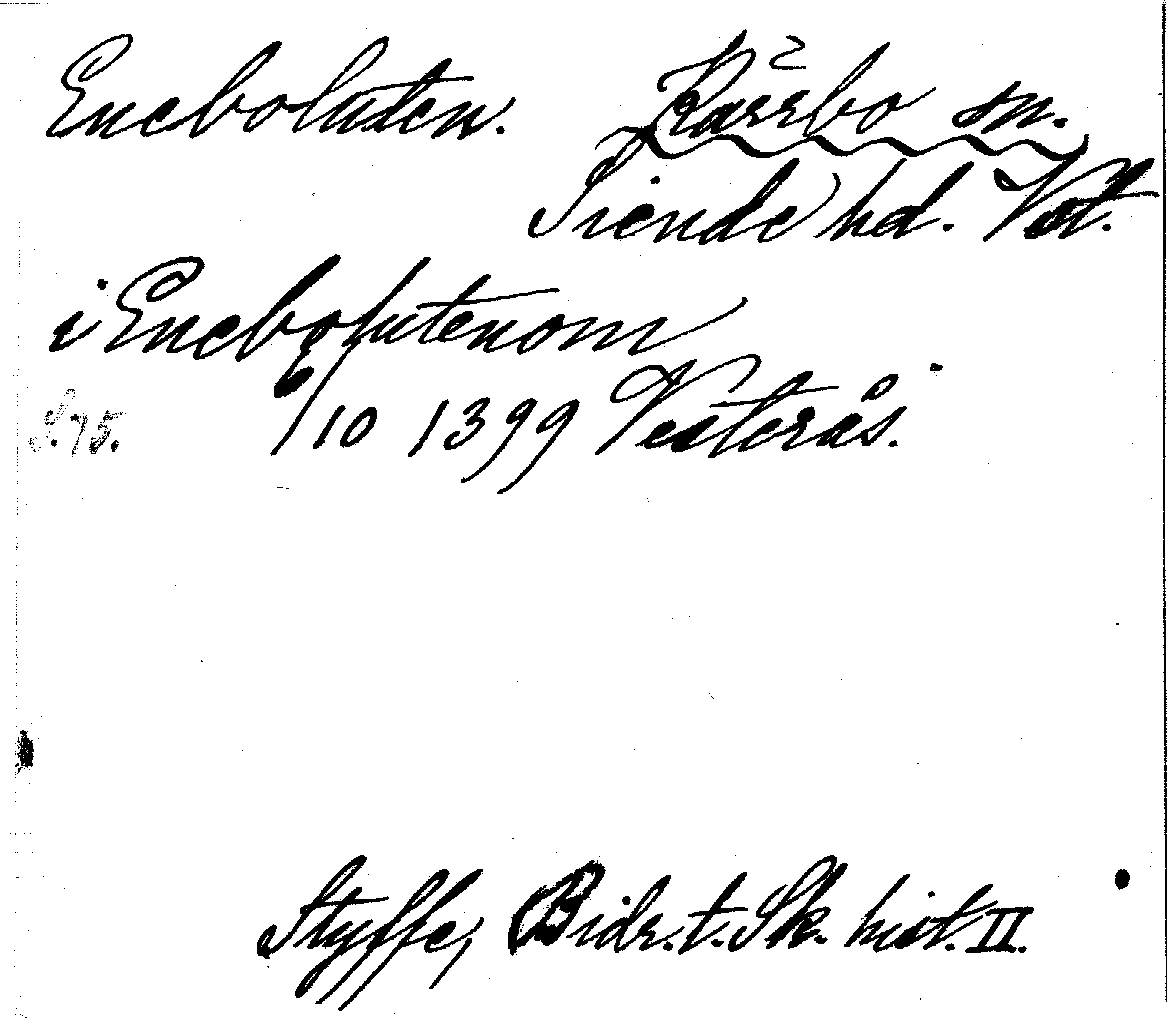 Eneboluten. Kärrbo sn.
Siende hd. Vstm.
i Enebolutenom
S. 75. 6/10 1399 Vesterås.
Styffe, Bidr. t. Sk. hist. II.